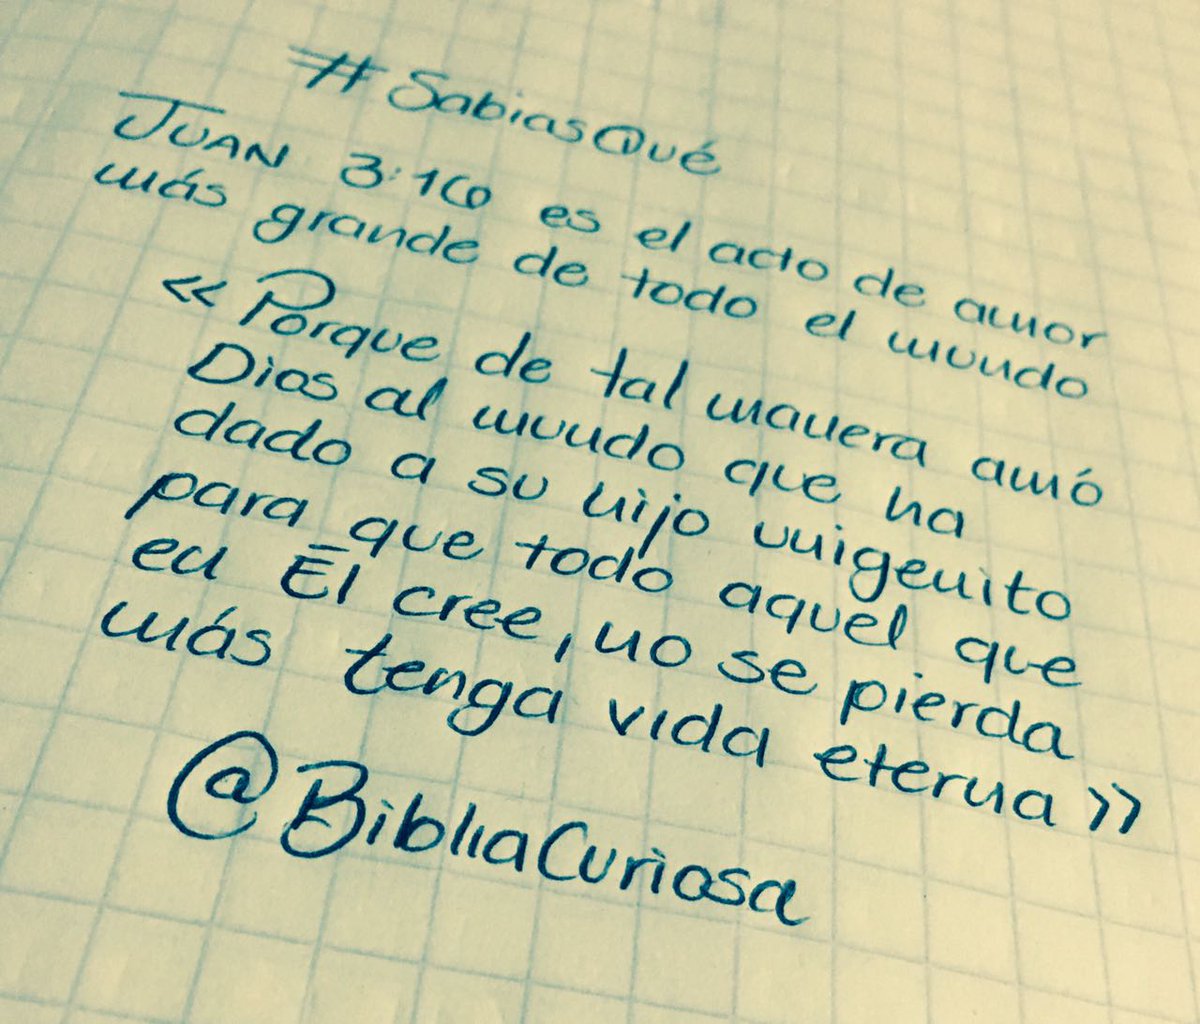 #SabiasQué
JUAN 3:16 es el acto de amor
más grande de todo el mundo
«Porque de tal manera amó
Dios al mundo que ha
dado a su hijo unigenito
para que todo aquel que
en Él cree, no se pierda
más tenga vida eterna»
@BibliaCuriosa